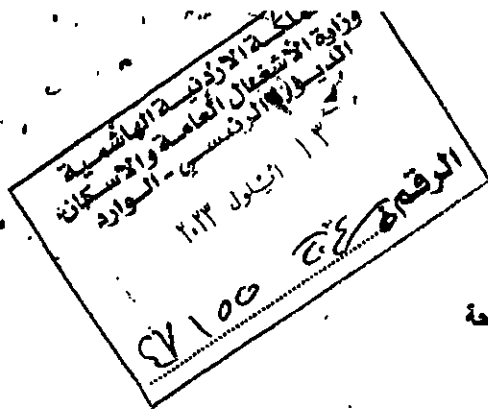 المملكة الاردنية الهاشمية
وزارة الأشغال العامة والاسكان
الديوان الرئيسي - الوارد
١٣ ايلول ٢٠٢٣
الرقم
٤٧١٥٥